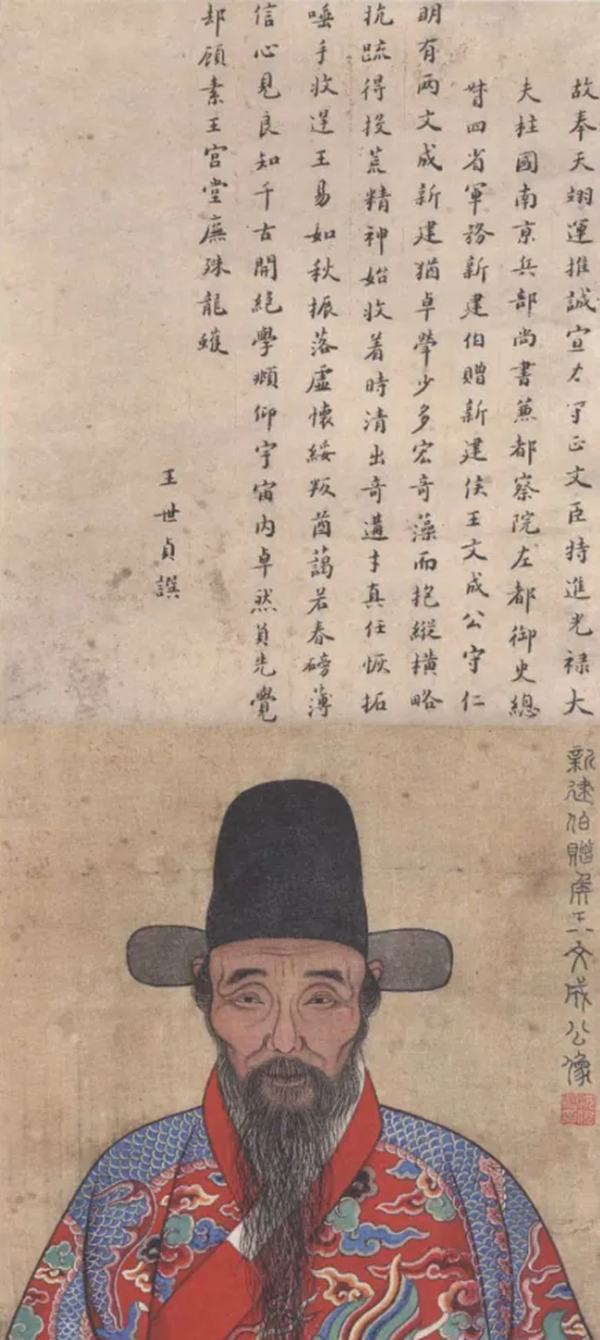 故奉天翊運推誠宣力守正文臣特進光禄大
夫柱國南京兵部尚書兼都察院左都御史總
督四省軍務新建伯贈新建侯王文成公守仁
明有兩文成新建猶卓犖少多宏奇藻而抱縱橫略
抗疏得投荒精神始收着時清出奇遘才真任恢拓
唾手收逞王易如秋振落虛懷綏叛酋藹若春磅薄
信心見良知千古開絕學頫仰宇宙內卓然負先覺
却顧素王宮堂廡殊龍蠖
王世貞譔
新建伯贈侯王文成公像